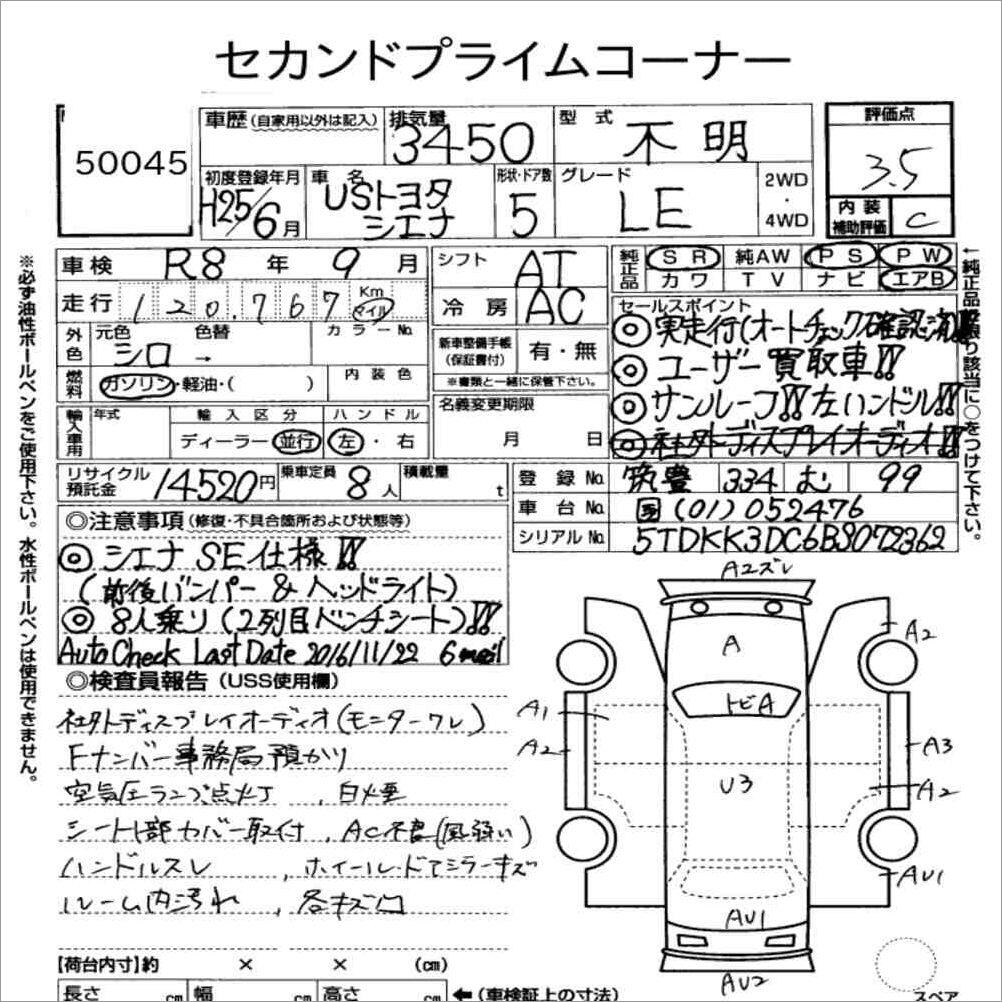 セカンドプライムコーナー
50045
車歴（自家用以外は記入）
排気量 3450
型式 不明
評価点 3.5
初度登録年月 H25/6月
車名 USトヨタ シエナ
形状・ドア数 5
グレード LE
2WD・4WD
内装補助評価 C
車検 R8年 9月
シフト AT
純正品 SR 純AW PS PW
カワ TV ナビ エアB
走行 120,767 Km マイル
冷房 AC
セールスポイント
◎実走行(オートチェック確認済)!!
◎ユーザー買取車!!
◎サンルーフ!!左ハンドル!!
◎社外ディスプレイオーディオ!!
外色 元色 シロ → 色替 カラーNo.
新車整備手帳（保証書付） 有・無
※書類と一緒に保管下さい。
燃料 ガソリン・軽油・( ) 内装色
名義変更期限 月 日
輸入車用 年式 輸入区分 ハンドル
ディーラー 並行 左・右
リサイクル預託金 14520円 乗車定員 8人 積載量 t
登録No. 筑豊 334 む 99
車台No. 国(01)052476
シリアルNo. 5TDKK3DC6BS072362
◎注意事項（修復・不具合箇所および状態等）
◎シエナ SE仕様!!
(前後バンパー & ヘッドライト)
◎8人乗り(2列目ベンチシート)!!
Auto Check Last Date 2016/11/22
◎検査員報告（USS使用欄）
社外ディスプレイオーディオ(モニターワレ)
Fナンバー事務局預かり
空気圧ランプ点灯、白ケ
シート1部カバー取付、AC不良(風弱い)
ハンドルスレ、ホイール・ドアミラーキズ
ルーム内汚れ、各キズ凹
【荷台内寸】約 × × (cm)
長さ cm 幅 cm 高さ cm ←（車検証上の寸法）
※必ず油性ボールペンをご使用下さい。水性ボールペンは使用できません。
←純正品に限り該当に○をつけて下さい。
A2ズレ
A
A2
トビA
A1
A2
A3
U3
A2
AU1
AU1
AU2
スペア